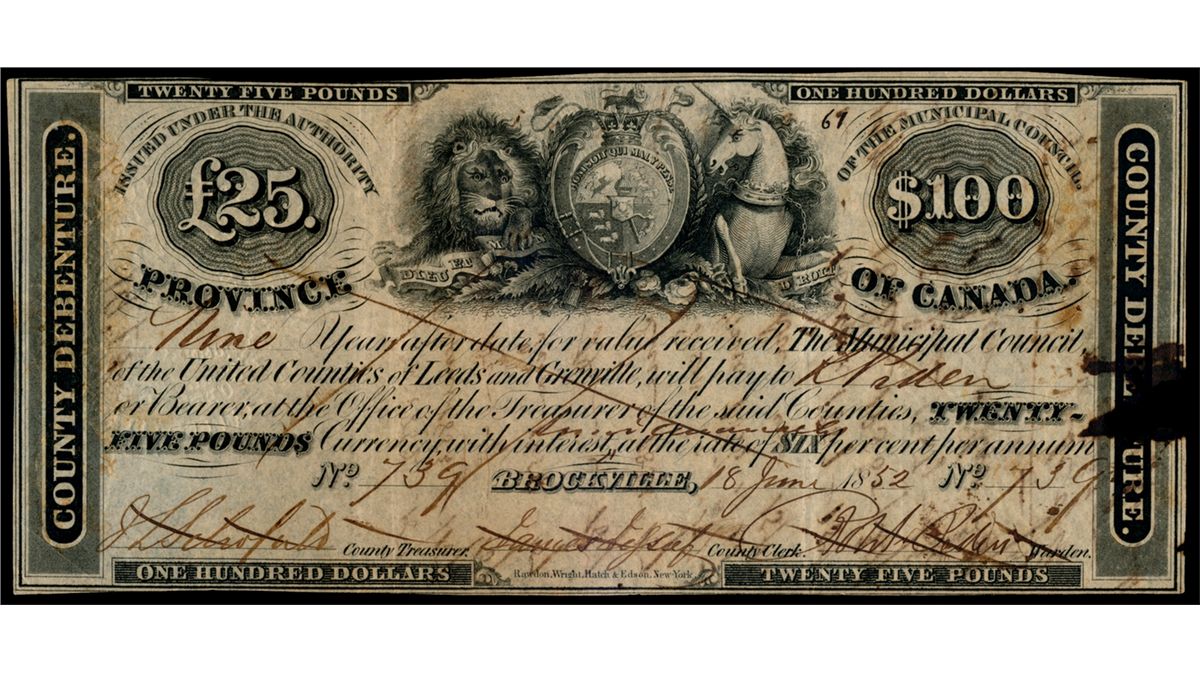 TWENTY FIVE POUNDS
ONE HUNDRED DOLLARS
ISSUED UNDER THE AUTHORITY
OF THE MUNICIPAL COUNCIL.
69
£25.
$100
COUNTY DEBENTURE.
COUNTY DEBE URE.
DIEU ET MON
DROIT
PROVINCE
OF CANADA.
Nine Years after date, for value received, The Municipal Council
of the United Counties of Leeds and Grenville, will pay to
or Bearer, at the Office of the Treasurer of the said Counties, TWENTY-
FIVE POUNDS Currency, with interest, at the rate of SIX per cent per annum
No 739 BROCKVILLE, 18 June 1852 No 739
County Treasurer. County Clerk. Warden.
ONE HUNDRED DOLLARS
Rawdon, Wright, Hatch & Edson, New-York.
TWENTY FIVE POUNDS